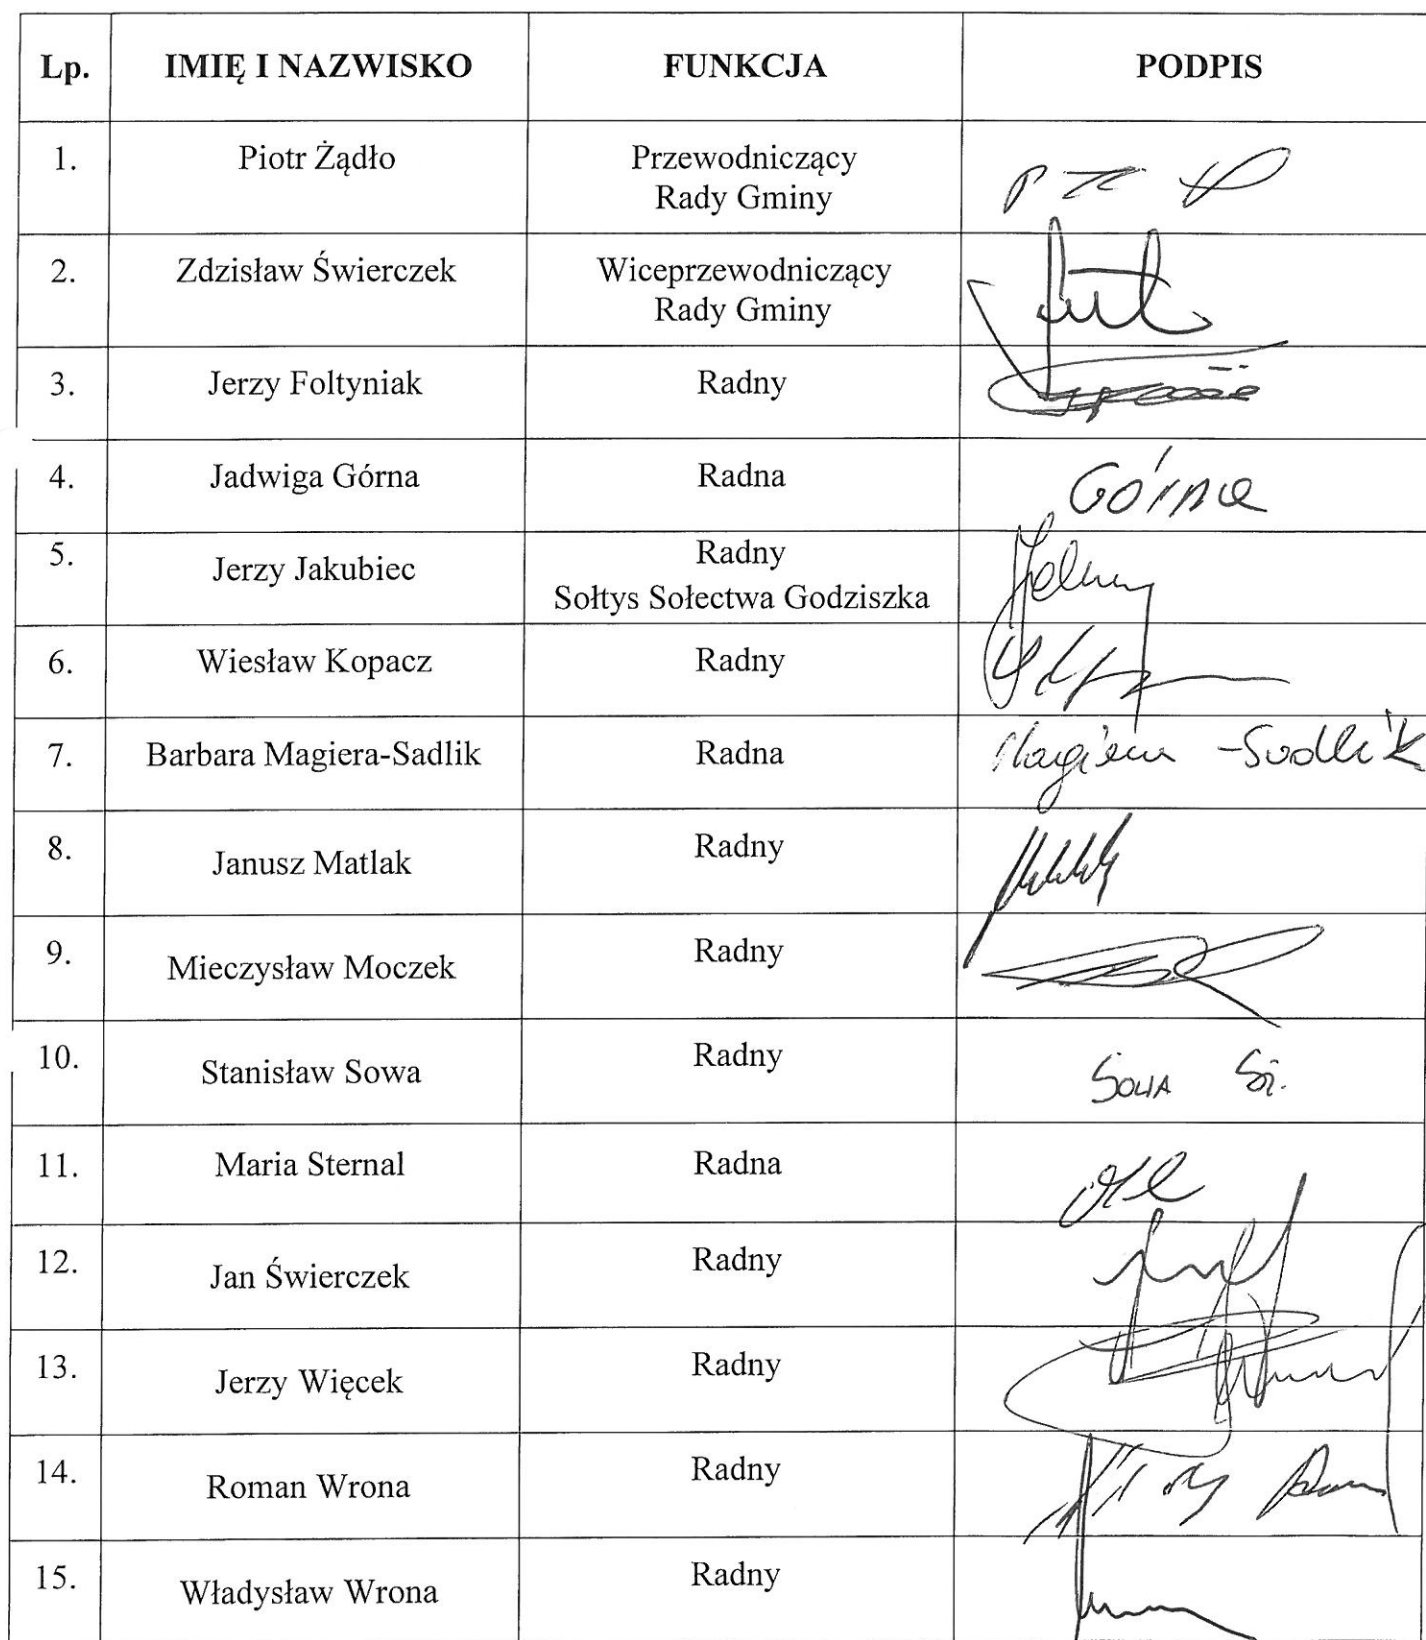 Lp. IMIĘ I NAZWISKO FUNKCJA PODPIS
1. Piotr Żądło Przewodniczący
Rady Gminy
2. Zdzisław Świerczek Wiceprzewodniczący
Rady Gminy
3. Jerzy Foltyniak Radny
4. Jadwiga Górna Radna Górna
5. Jerzy Jakubiec Radny
Sołtys Sołectwa Godziszka
6. Wiesław Kopacz Radny
7. Barbara Magiera-Sadlik Radna Magiera-Sadlik
8. Janusz Matlak Radny
9. Mieczysław Moczek Radny
10. Stanisław Sowa Radny Sowa St.
11. Maria Sternal Radna
12. Jan Świerczek Radny
13. Jerzy Więcek Radny
14. Roman Wrona Radny
15. Władysław Wrona Radny